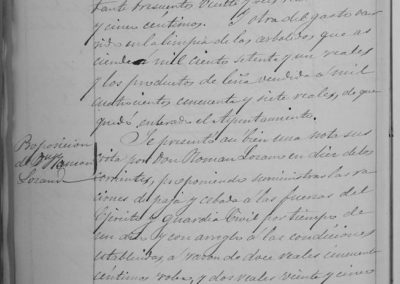 tante trescientos veinte y seis rea
y cinco centimos. á otra del gasto cau
sado en la limpia de los arbolados que as
ciende a mil ciento setenta y un reales
y los productos de leña vendida a mil
cuatrocientos cincuenta y siete reales, de que
quedó enterado el Ayuntamiento.
Se presentó tambien una nota sus
Proposicion
de Dn Roman
Lozano
crita por Don Roman Lozano en diez de los
corrientes, proponiendo suministrar las ra
ciones de paja y cebada á las fuerzas del
Ejercito y guardia Civil por tiempo de
un año y con arreglo a las condiciones
establecidas, a razon de doce reales cincuenta
centimos y dos reales veinte y cinco